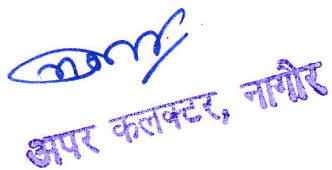 अपर कलक्टर, नागौर